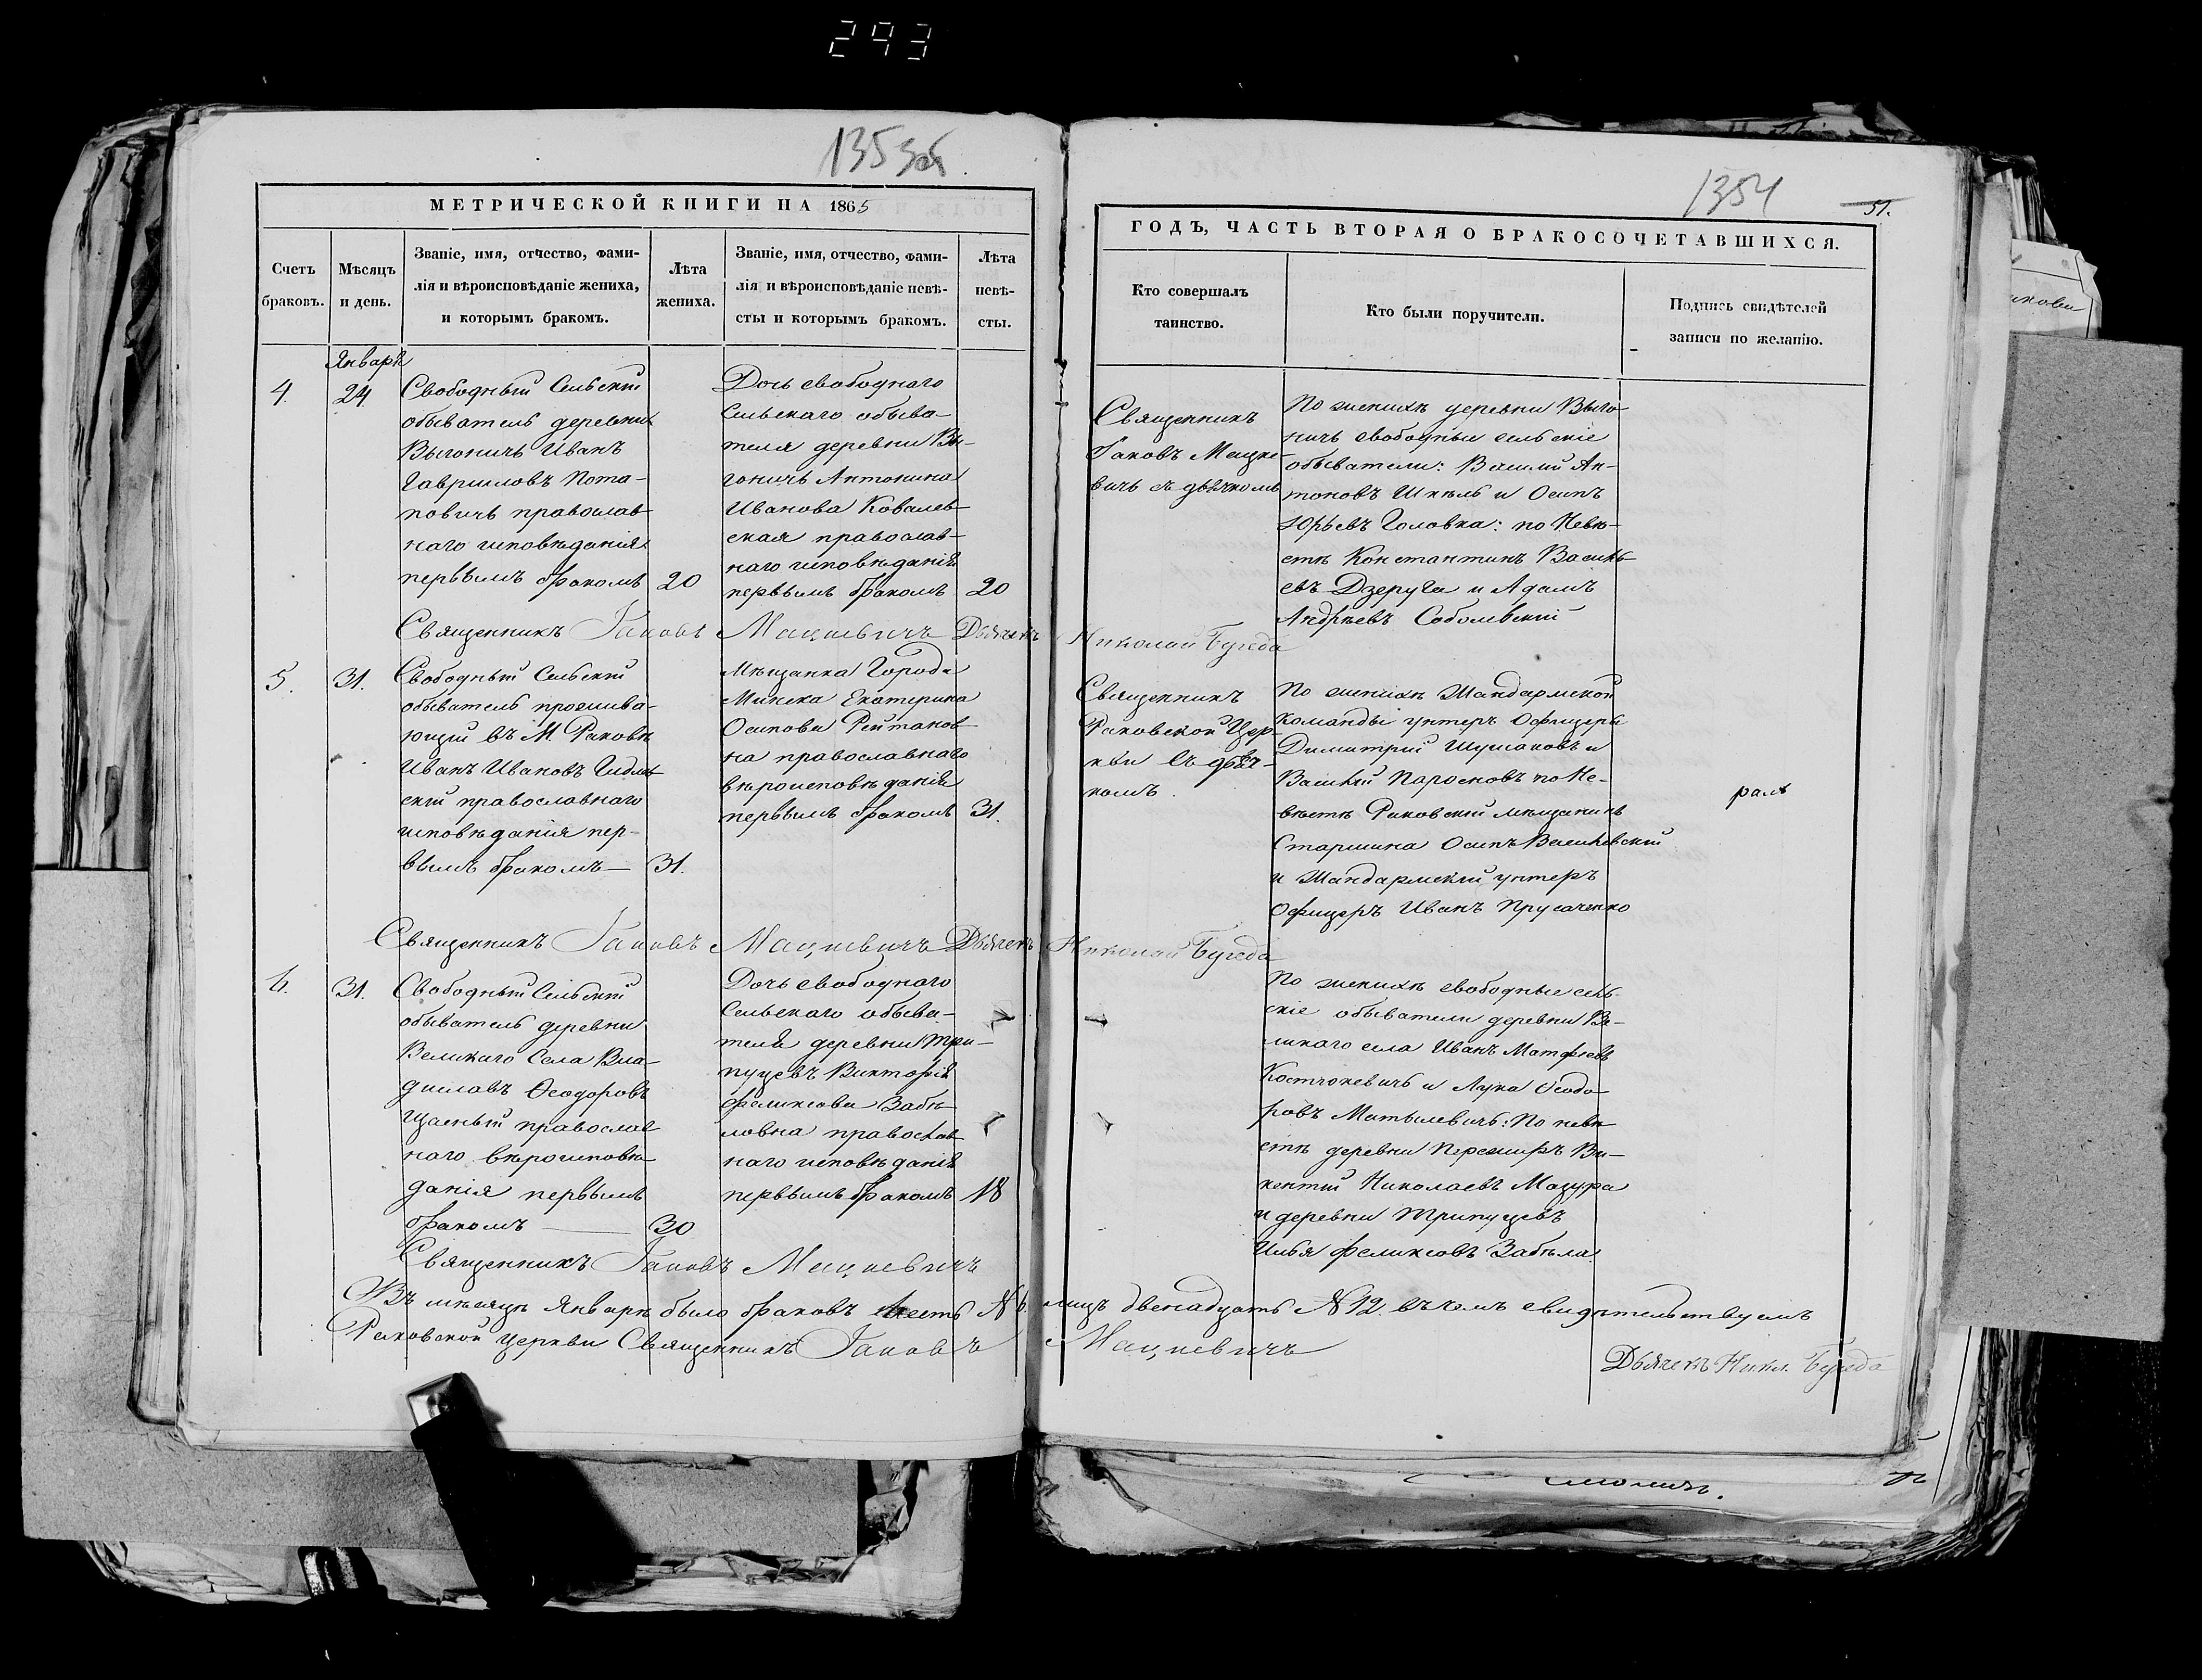 293
1353об
МЕТРИЧЕСКОЙ КНИГИ НА 1865
Счетъ браковъ.
Мѣсяцъ и день.
Званіе, имя, отчество, фами-
лія и вѣроисповѣданіе жениха,
и которымъ бракомъ.
Лѣта жениха.
Званіе, имя, отчество, фами-
лія и вѣроисповѣданіе невѣ-
сты и которымъ бракомъ.
Лѣта невѣ-
сты.
Январь
4.
24
Свободный Сельскій
обыватель деревни
Выгоничь Иванъ
Гавриловъ Пота-
повичь православ-
наго исповѣданія
первымъ бракомъ
20
Дочь свободнаго
Сельскаго обыва-
теля деревни Вы-
гоничь Антонина
Иванова Ковалев-
ская православ-
наго исповѣданія
первымъ бракомъ
20
Священникъ Іаковъ Мацкевичъ Дьячекъ
5.
31.
Свободный Сельскій
обыватель прожива-
ющій въ М. Раковѣ
Иванъ Ивановъ
скій православнаго
исповѣданія пер-
вымъ бракомъ —
31.
Мѣщанка Города
Минска Екатерина
Осипова Рейтанов-
на православнаго
вѣроисповѣданія
первымъ бракомъ
31.
Священникъ Іаковъ Мацкевичъ Дьячекъ
6.
31.
Свободный Сельскій
обыватель деревни
Великаго Села Вла-
диславъ Ѳеодоровъ
Щасный православ
наго вѣроисповѣ-
данія первымъ
бракомъ —
30
Дочь свободнаго
Сельскаго обыва-
теля деревни Три-
пуцевъ Викторія
Феликсова Забѣ-
ловна православ-
наго исповѣданія
первымъ бракомъ
18
Священникъ Іаковъ Мацкевичъ
Въ мѣсяцѣ Январѣ было браковъ шесть № 6.
Раковской церкви Священникъ Іаковъ
1354
51.
ГОДЪ, ЧАСТЬ ВТОРАЯ О БРАКОСОЧЕТАВШИХСЯ.
Кто совершалъ
таинство.
Кто были поручители.
Подпись свидѣтелей
записи по желанію.
Священникъ
Іаковъ Мацке-
вичь съ дьячкомъ
По женихѣ деревни Выго-
ничь свободныи сельскіе
обыватели: Василій Ан-
тоновъ Шкель и Осипъ
Юрьевъ Головка: по Невѣ-
стѣ Константинъ Василь-
евъ Дзеруга и Адамъ
Андреевъ Соболевскій
Николай Бугеда
Священникъ
Раковской Цер-
кви съ дьяч-
комъ.
По женихѣ Жандармской
Команды унтеръ Офицеры
Димитрій Шушаковъ и
Василій Паросковъ по Не-
вѣстѣ Раковскій мѣщанинъ
Старшина Осипъ Василевскій
и Жандармскій унтеръ
Офицеръ Иванъ Прусаченко
Николай Бугеда
По женихѣ свободные сель-
скіе обыватели деревни Ве-
ликаго села Иванъ Матфеевъ
Костюкевичь и Лука Ѳеодо-
ровъ Матылевичь: По невѣ-
стѣ деревни Пережиръ Ви-
кентій Николаевъ Мазура
и деревни Трипуцевъ
Илья Феликсовъ Забѣла.
лицъ двенадцать № 12. въ чемъ свидѣтельствуемъ
Мацкевичъ
Дьячекъ Никол. Бугеда